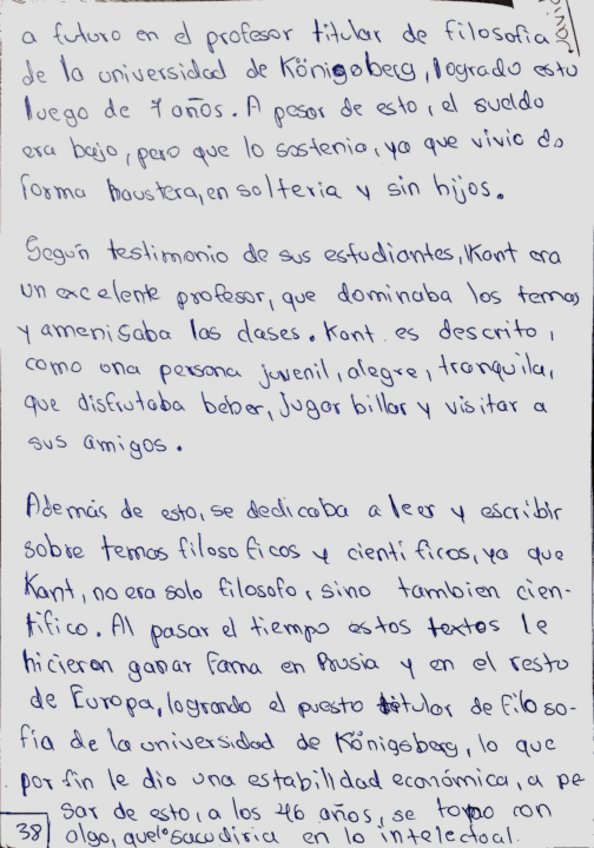 a futuro en el profesor titular de filosofia
de la universidad de Königsberg, logrado esto
luego de 7 años. A pesar de esto, el sueldo
era bajo, pero que lo sostenia, ya que vivio de
forma haustera, en solteria y sin hijos.
Según testimonio de sus estudiantes, Kant era
un excelente profesor, que dominaba los temas
y amenisaba las clases. Kant es descrito,
como una persona juvenil, alegre, tranquila,
que disfrutaba beber, jugar billar y visitar a
sus amigos.
Además de esto, se dedicaba a leer y escribir
sobre temas filosoficos y cientificos, ya que
Kant, no era solo filosofo, sino tambien cien-
tifico. Al pasar el tiempo estos textos le
hicieron ganar fama en Prusia y en el resto
de Europa, logrando el puesto titular de filoso-
fia de la universidad de Königsberg, lo que
por fin le dio una estabilidad económica, a pe
sar de esto, a los 46 años, se topo con
38 algo, que lo sacudiria en lo intelectual.